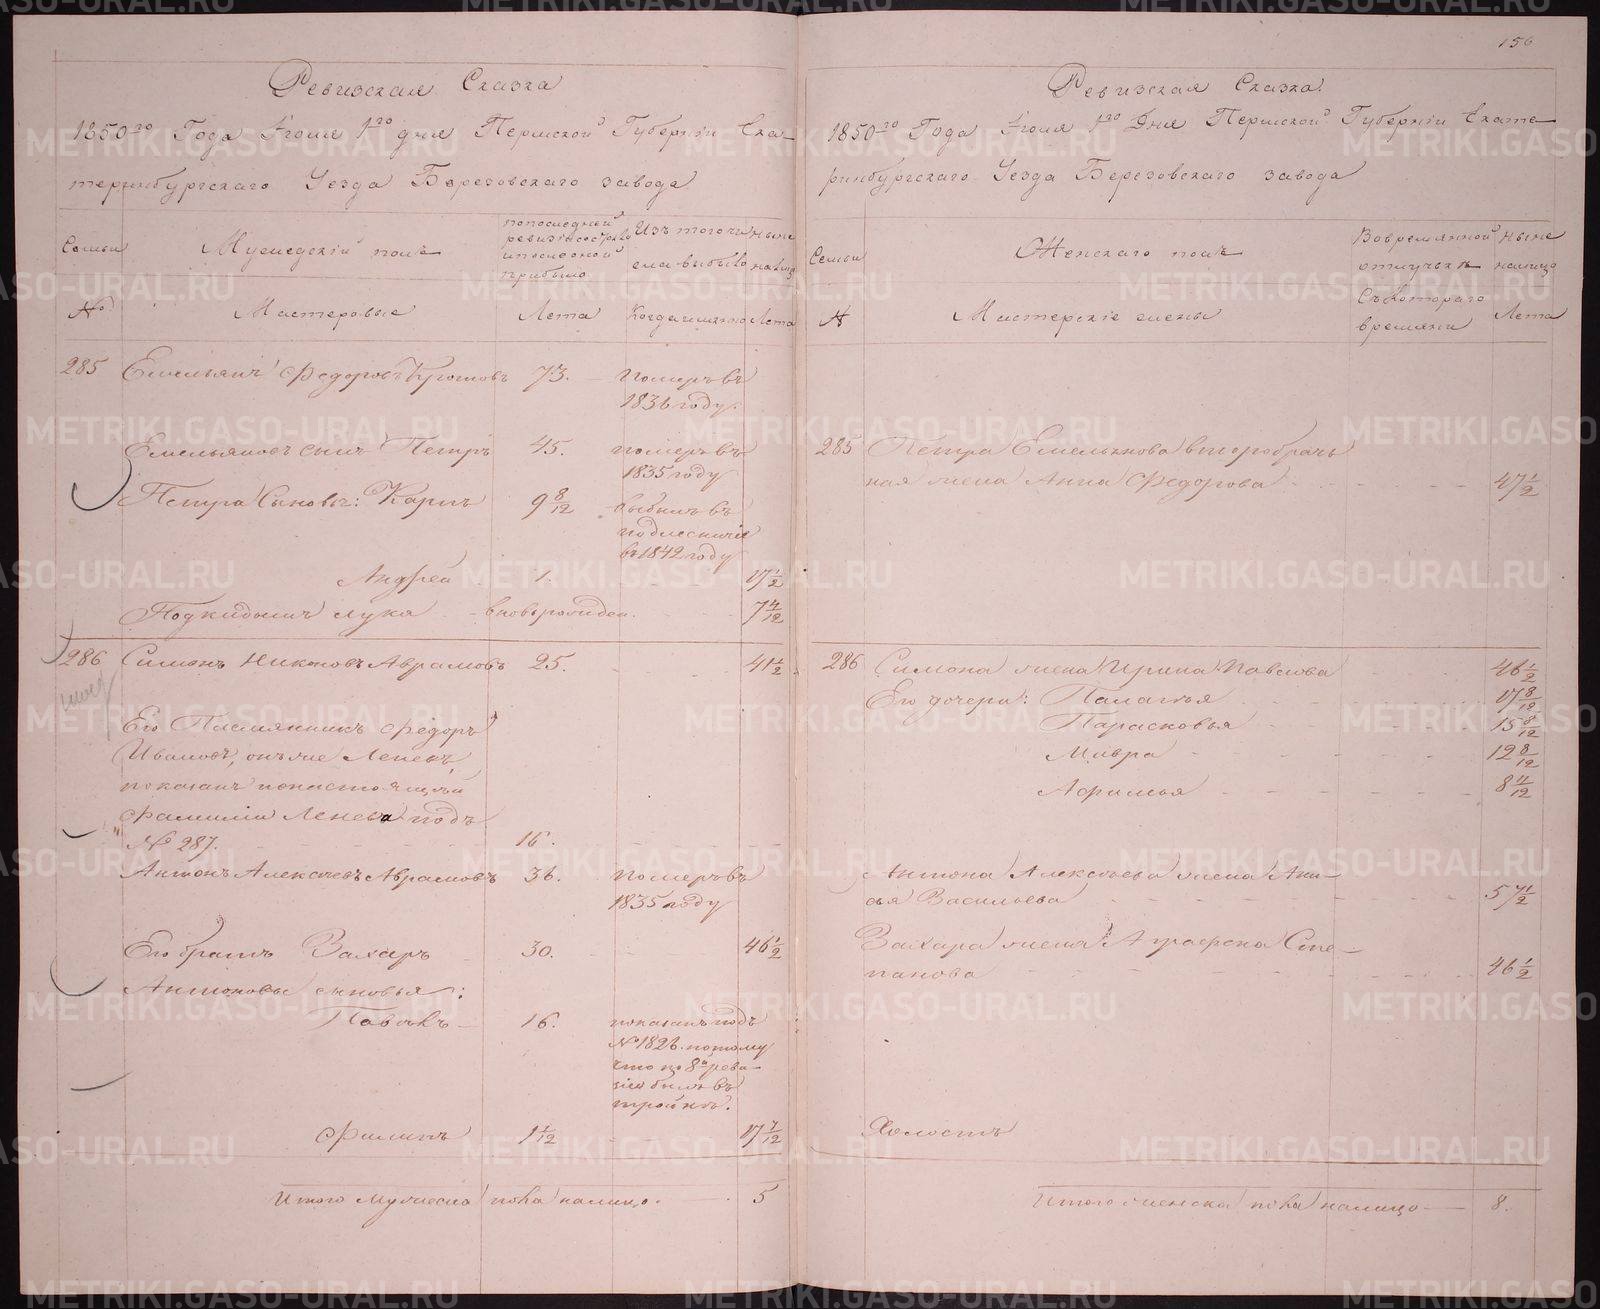 156
Ревизская Сказка
1850го Года Iюля 1го дня Пермской Губернiи Ека-
теринбургскаго Уезда Березовскаго завода
Семьи
Мужедскiй полъ
попоследней ревизiи состояло ипоследной прибыло
Изъ того числа выбыло
ныне налицо
№
Мастеровые
Лета
Когда имянно
Лета
285 Емельянъ Федоровъ Кротовъ 73. Померъ въ
1836 году.
Емельяновъ сынъ Петръ 45. померъ въ
1835 году
Петра Сыновья: Карпъ 9 8/12 выбылъ въ
подлесничiе
въ 1842 году
Андрей 1. 17 1/2
Подкидышъ Лука вновьрожден. 7 4/12
286 Симонъ Никоновъ Аврамовъ 25. 41 1/2
Его Племянникъ Федоръ
Ивановъ, онъ же Леневъ,
показанъ понастоящей
фамилiи Ленева подъ
№ 287. 16.
Антонъ Алексеевъ Аврамовъ 36. Померъ въ
1835 году
Его братъ Захаръ 30. 46 1/2
Антоновы сыновья:
Павелъ 16. показанъ подъ
№ 1826. потому
что по 8й реви-
зiи былъ въ
тройкъ.
Филипъ 1 1/12 17 7/12
Итого мужеска пола налицо. 5
Ревизская Сказка
1850го Года Iюля 1го Дня Пермской Губернiи Екате
ринбургскаго Уезда Березовскаго завода
Семьи
Женскаго полъ
Вовремянной отлучьке
ныне налицо
№
Мастерскiе жены
Съкотораго времяни
Лета
285 Петра Емельянова второбрачь
ная жена Анна Федорова 47 1/2
286 Симона жена Ирина Павлова 46 1/2
Его дочери: Палагья 17 8/12
Парасковья 15 8/12
Мавра 12 8/12
Афимья 8 4/12
Антона Алексеева жена Ани-
сья Васильева 57 1/2
Захара жена Аграфена Сте-
панова 46 1/2
Холостъ
Итого женска пола налицо 8.
METRIKI.GASO-URAL.RU